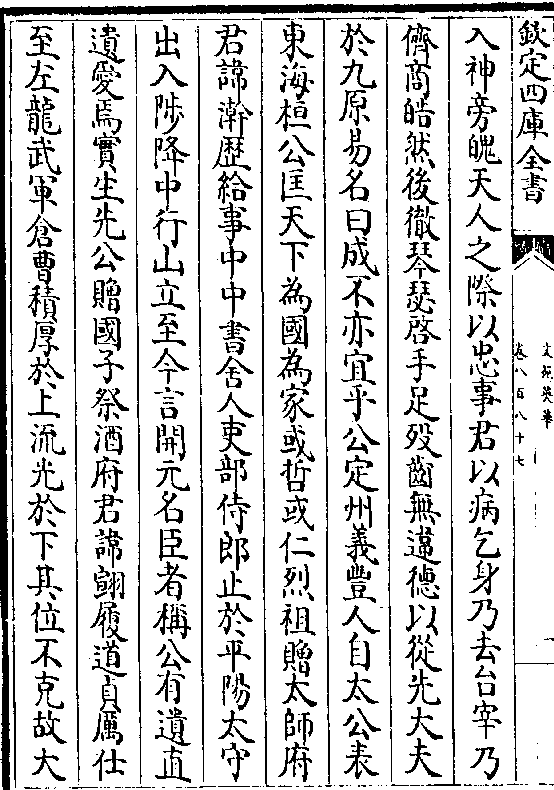 欽定四庫全書
文苑英華
卷八百八十七
入神旁魄天人之際以忠事君以病乞身乃去台宰乃
儕商皓然後徹琴瑟啓手足歿齒無違德以從先大夫
於九原易名曰成不亦宜乎公定州義豐人自太公表
東海桓公匡天下為國為家或哲或仁烈祖贈太師府
君諱澣歴給事中中書舍人吏部侍郎止於平陽太守
出入陟降中行山立至今言開元名臣者稱公有遺直
遺愛焉實生先公贈國子祭酒府君諱翱履道貞厲仕
至左龍武軍倉曹積厚於上流光於下其位不克故大